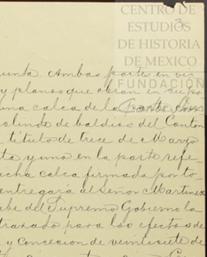 CENTRO DE
ESTUDIOS
DE HISTORIA
DE MEXICO
3
FUNDACIÓN
junta Ambas parte en vir
y planos que obran en
una calca de la Carta
olinda de baldios del Canton
titulo de trece de Marzo
ta y uno en la parte refe
cha calca firmada por to
entregará al Señor Martinez
abe del Supremo Gobierno la
trazado para los efectos de
y Concecion de veintisiete de